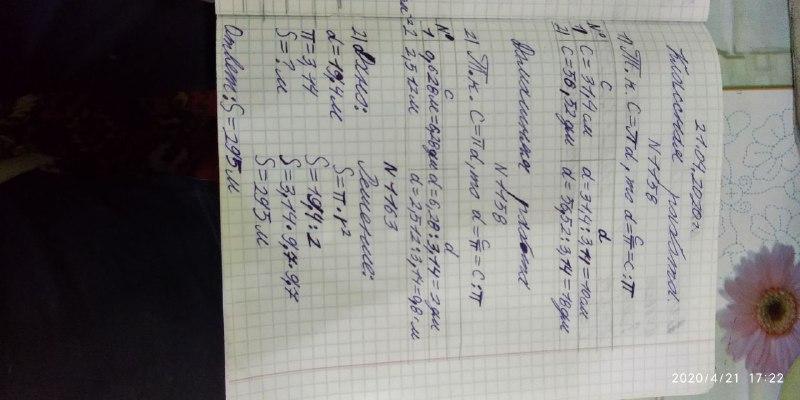 21.04.2020г.
Классная работа.
N1158
1) Т.к. C=πd, то d=C/π=C:π
№ C d
1) C=314 см d=314:3,14=100м
2) C=56,52дм d=56,52:3,14=18дм
Домашняя работа
N1158
2) Т.к. C=πd, то d=C/π=C:π
№ C d
1 0,628м=6,28дм d=6,28:3,14=2дм
2 2,512м d=2,512:3,14=0,8м
N1163
2) Дано: Решение:
d=19,4м S=π·r²
π=3,14 S=19,4:2
S=?м S=3,14·9,7·9,7
S=295м
Ответ: S=295м
2020/4/21 17:22